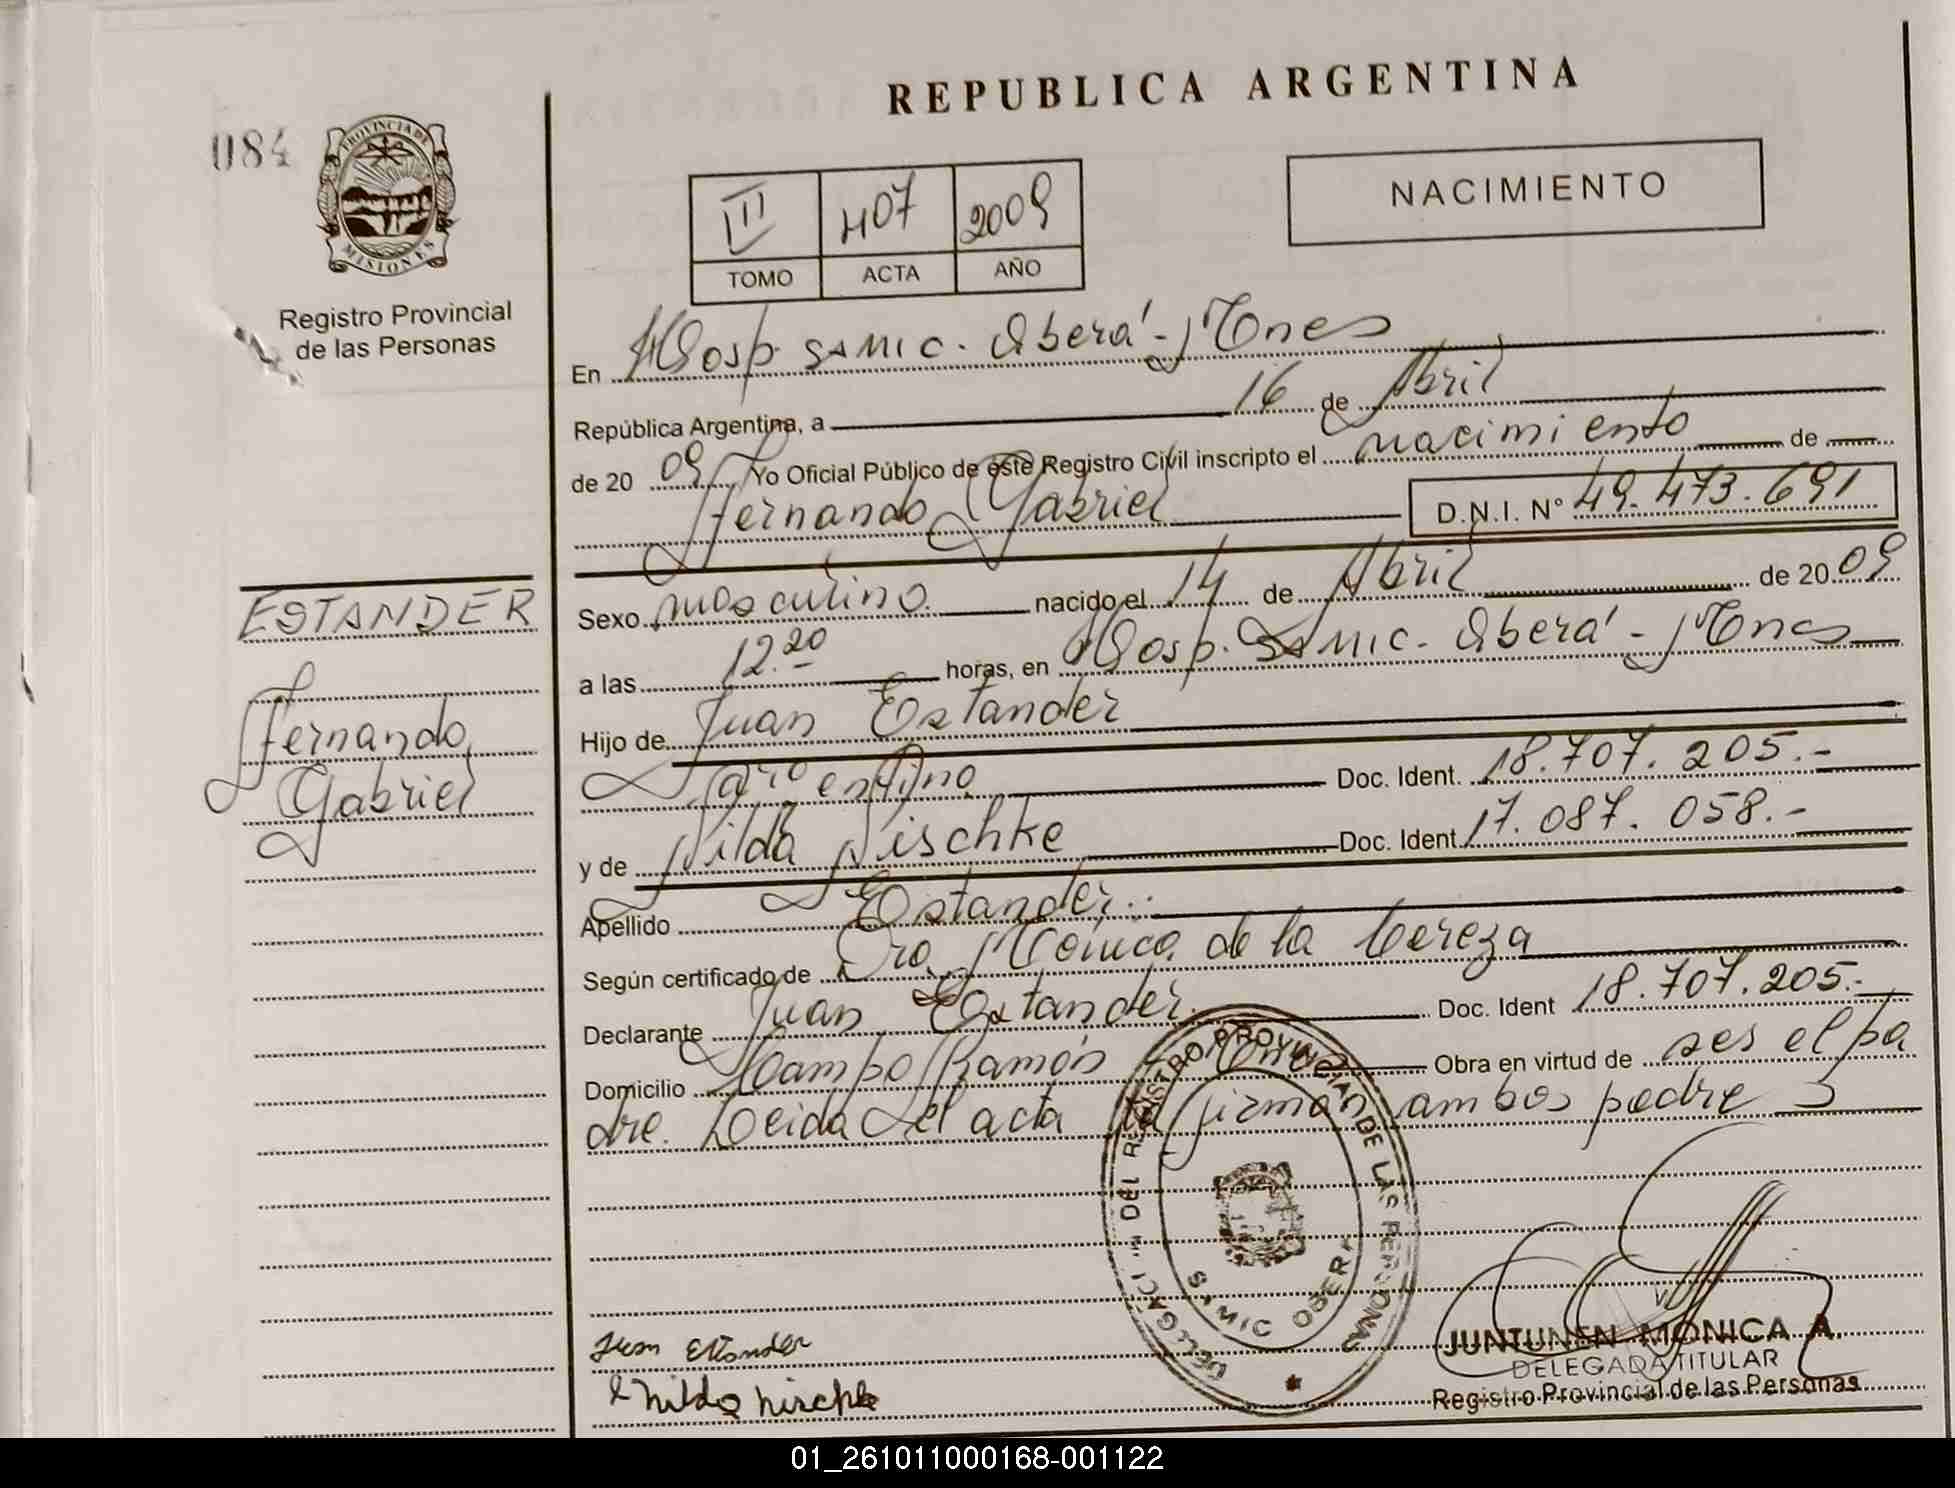 REPUBLICA ARGENTINA
084
PROVINCIA DE
MISIONES
Registro Provincial
de las Personas
III 407 2009
TOMO ACTA AÑO
NACIMIENTO
En Hosp. SAMIC. Oberá - Mnes
República Argentina, a 16 de Abril
de 20 09 Yo Oficial Público de este Registro Civil inscripto el nacimiento de
Fernando Gabriel D.N.I. N° 49.473.691
ESTANDER
Fernando
Gabriel
Sexo masculino nacido el 14 de Abril de 20 09
a las 12.20 horas, en Hosp. SAMIC. Oberá - Mnes
Hijo de Juan Estander
argentino Doc. Ident. 18.707.205.-
y de Nilda Nischke Doc. Ident 17.087.058.-
Apellido Estander..
Según certificado de Dra. Mónica de la Cereza
Declarante Juan Estander Doc. Ident 18.707.205.-
Domicilio Campo Ramón Mnes Obra en virtud de ser el pa
dre. Leida el acta la firman ambos padre s
DELEGACI N DEL REGISTRO PROVINCIAL DE LAS PERSONAS
SAMIC OBERA
Juan Estander
Nilda Nischke
JUNTUNEN MONICA A.
DELEGADA TITULAR
Registro Provincial de las Personas
01_261011000168-001122